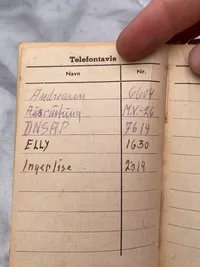 Telefontavle
Navn Nr.
Andreasen 6604
MV-26
DNSAP 7614
ELLY 1630
Ingerlise 2019